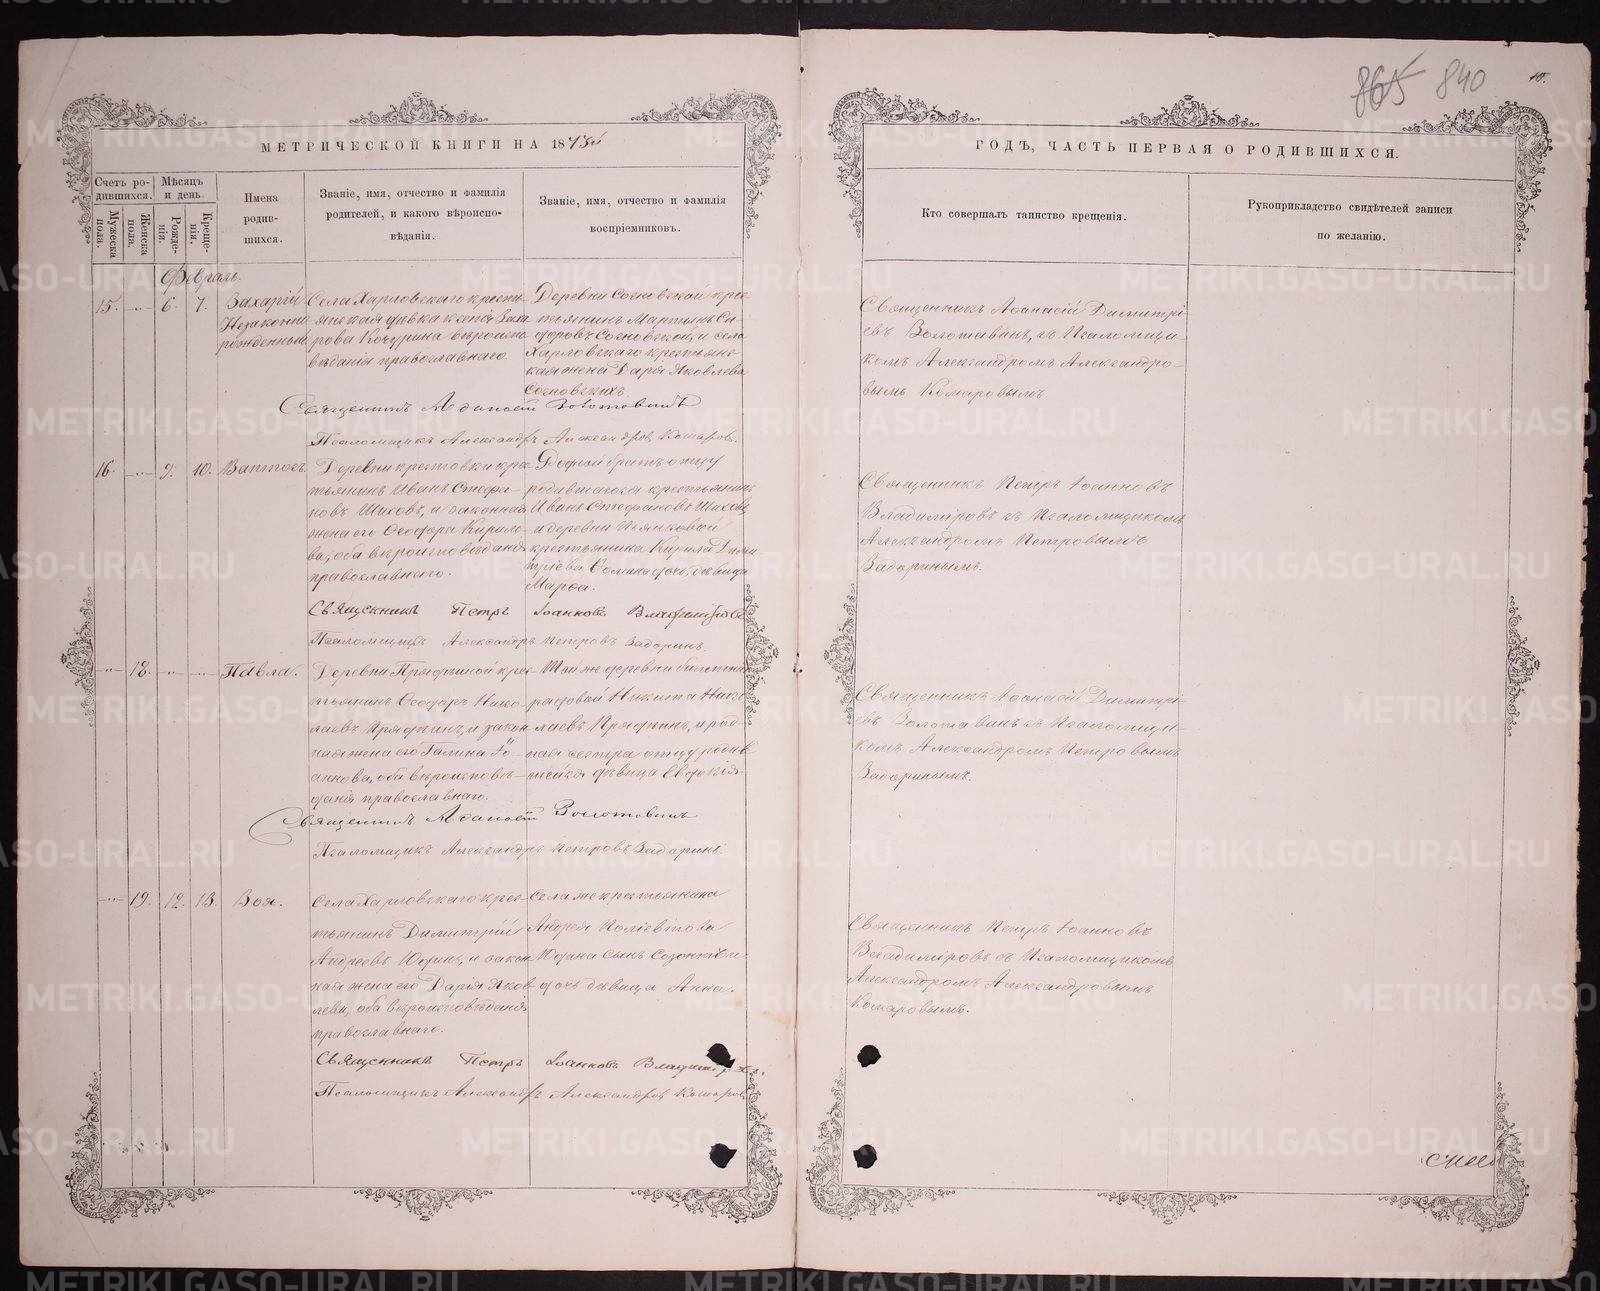 865 840
10.
МЕТРИЧЕСКОЙ КНИГИ НА 1873й
ГОДЪ, ЧАСТЬ ПЕРВАЯ О РОДИВШИХСЯ.
Счетъ родившихся.
Мужеска пола.
Женска пола.
Мѣсяцъ и день.
Рожденія.
Крещенія.
Имена родившихся.
Званіе, имя, отчество и фамилія
родителей, и какого вѣроиспо-
вѣданія.
Званіе, имя, отчество и фамилія
воспріемниковъ.
Кто совершалъ таинство крещенія.
Рукоприкладство свидѣтелей записи
по желанію.
Февраль.
15. 6. 7. Захарій
Незаконно
рожденный
Села Харловскаго кресть
янская дѣвка
рова Кочурина вѣроиспо
вѣданія православнаго.
Деревни Сосновской крес
тьянинъ Мартынъ Си-
доровъ Сосновской, и села
Харловскаго крестьянс
кая жена Дарья Яковлева
Сосновскихъ.
Священникъ Аѳанасій Димитрі-
евъ Золотавинъ, съ Псаломщи-
комъ Александромъ Александро-
вымъ Комаровымъ.
Священникъ Аѳанасій Золотовинъ
Псаломщикъ Александръ Александровъ Комаровъ.
16. 9. 10.
Деревни Крестовки крес
тьянинъ Иванъ Стефа-
новъ Шиховъ, и законная
жена его Ѳеодора Кирило-
ва, оба вѣроисповѣданія
православнаго.
Родной братъ отцу
родившагося крестьянинъ
Иванъ Стефановъ Шиховъ,
и деревни Пьянковой
крестьянина Кирила Дими
тріева дочь, дѣвица
Марѳа.
Священникъ Петръ Іоанновъ
Владиміровъ съ Псаломщикомъ
Александромъ Петровымъ
Задоринымъ.
Священникъ Петръ Іоанновъ Владиміровъ
Псаломщикъ Александръ Петровъ Задоринъ.
18. Павла.
Деревни Прядѣиной крес-
тьянинъ Ѳеодоръ Нико-
лаевъ Прядѣинъ, и закон
ная жена его Галина Іо-
аннова, оба вѣроисповѣ-
данія православнаго.
Той же деревни билетный
рядовой Никита Нико
лаевъ Прядѣинъ, и род-
ная сестра отцу родив
шейся дѣвица Евдокія.
Священникъ Аѳанасій Димитрі-
евъ Золотавинъ съ Псаломщи-
комъ Александромъ Петровымъ
Задоринымъ.
Священникъ Аѳанасій Золотовинъ
Псаломщикъ Александръ Петровъ Задоринъ.
19. 12. 13. Зоя.
Села Харловскаго крес-
тьянинъ Димитрій
Андреевъ Юдинъ, и закон
ная жена его Дарія Яков
лева, оба вѣроисповѣданія
православнаго.
Села же крестьянина
Андрея Поліевктова
Юдина сынъ Созонтъ и
дочь дѣвица Анна.
Священникъ Петръ Іоанновъ
Владиміровъ съ Псаломщикомъ
Александромъ Александровымъ
Комаровымъ.
Священникъ Петръ Іоанновъ Владиміровъ.
Псаломщикъ Александръ Александровъ Комаровъ
METRIKI.GASO-URAL.RU